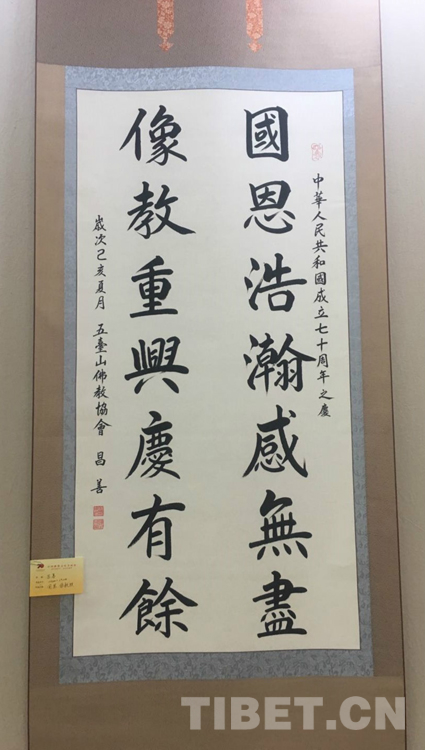 中華人民共和國成立七十周年之慶
國恩浩瀚感無盡
像教重興慶有餘
歲次己亥夏月 五臺山佛教協會 昌善
TIBET.CN